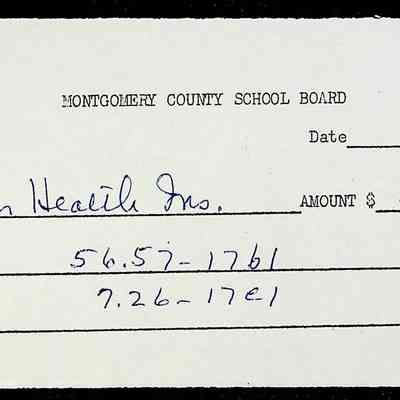 MONTGOMERY COUNTY SCHOOL BOARD
Date
Health Ins. AMOUNT $
56.57-17b1
7.26-17e1